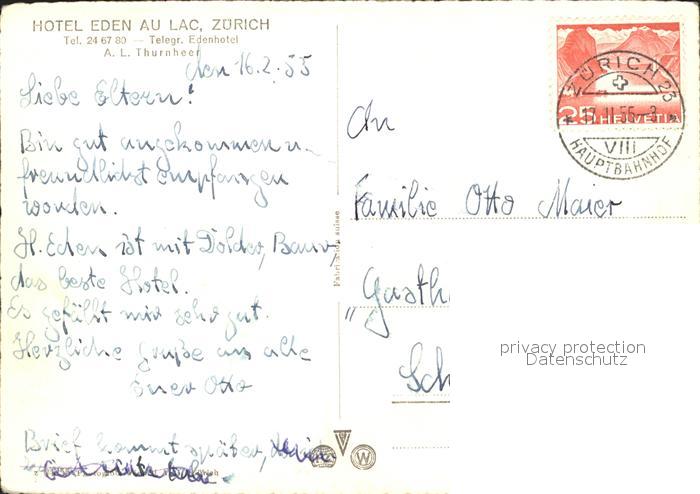 HOTEL EDEN AU LAC, ZÜRICH
Tel. 24 67 80 — Telegr. Edenhotel
A. L. Thurnheer
den 16.2.55
Liebe Eltern!
Bin gut angekommen u.
freundlichst empfangen
worden.
H. Eden ist mit Dolder, Baur,
das beste Hotel.
Es gefällt mir sehr gut.
Herzliche Grüße an alle
Euer Otto
Brief kommt später,
An
Familie Otto Maier
"Gasth
Sch
Fabrication suisse
ZÜRICH 23
17.II.55-8
VIII
HAUPTBAHNHOF
25 HELVETIA
W
privacy protection
Datenschutz